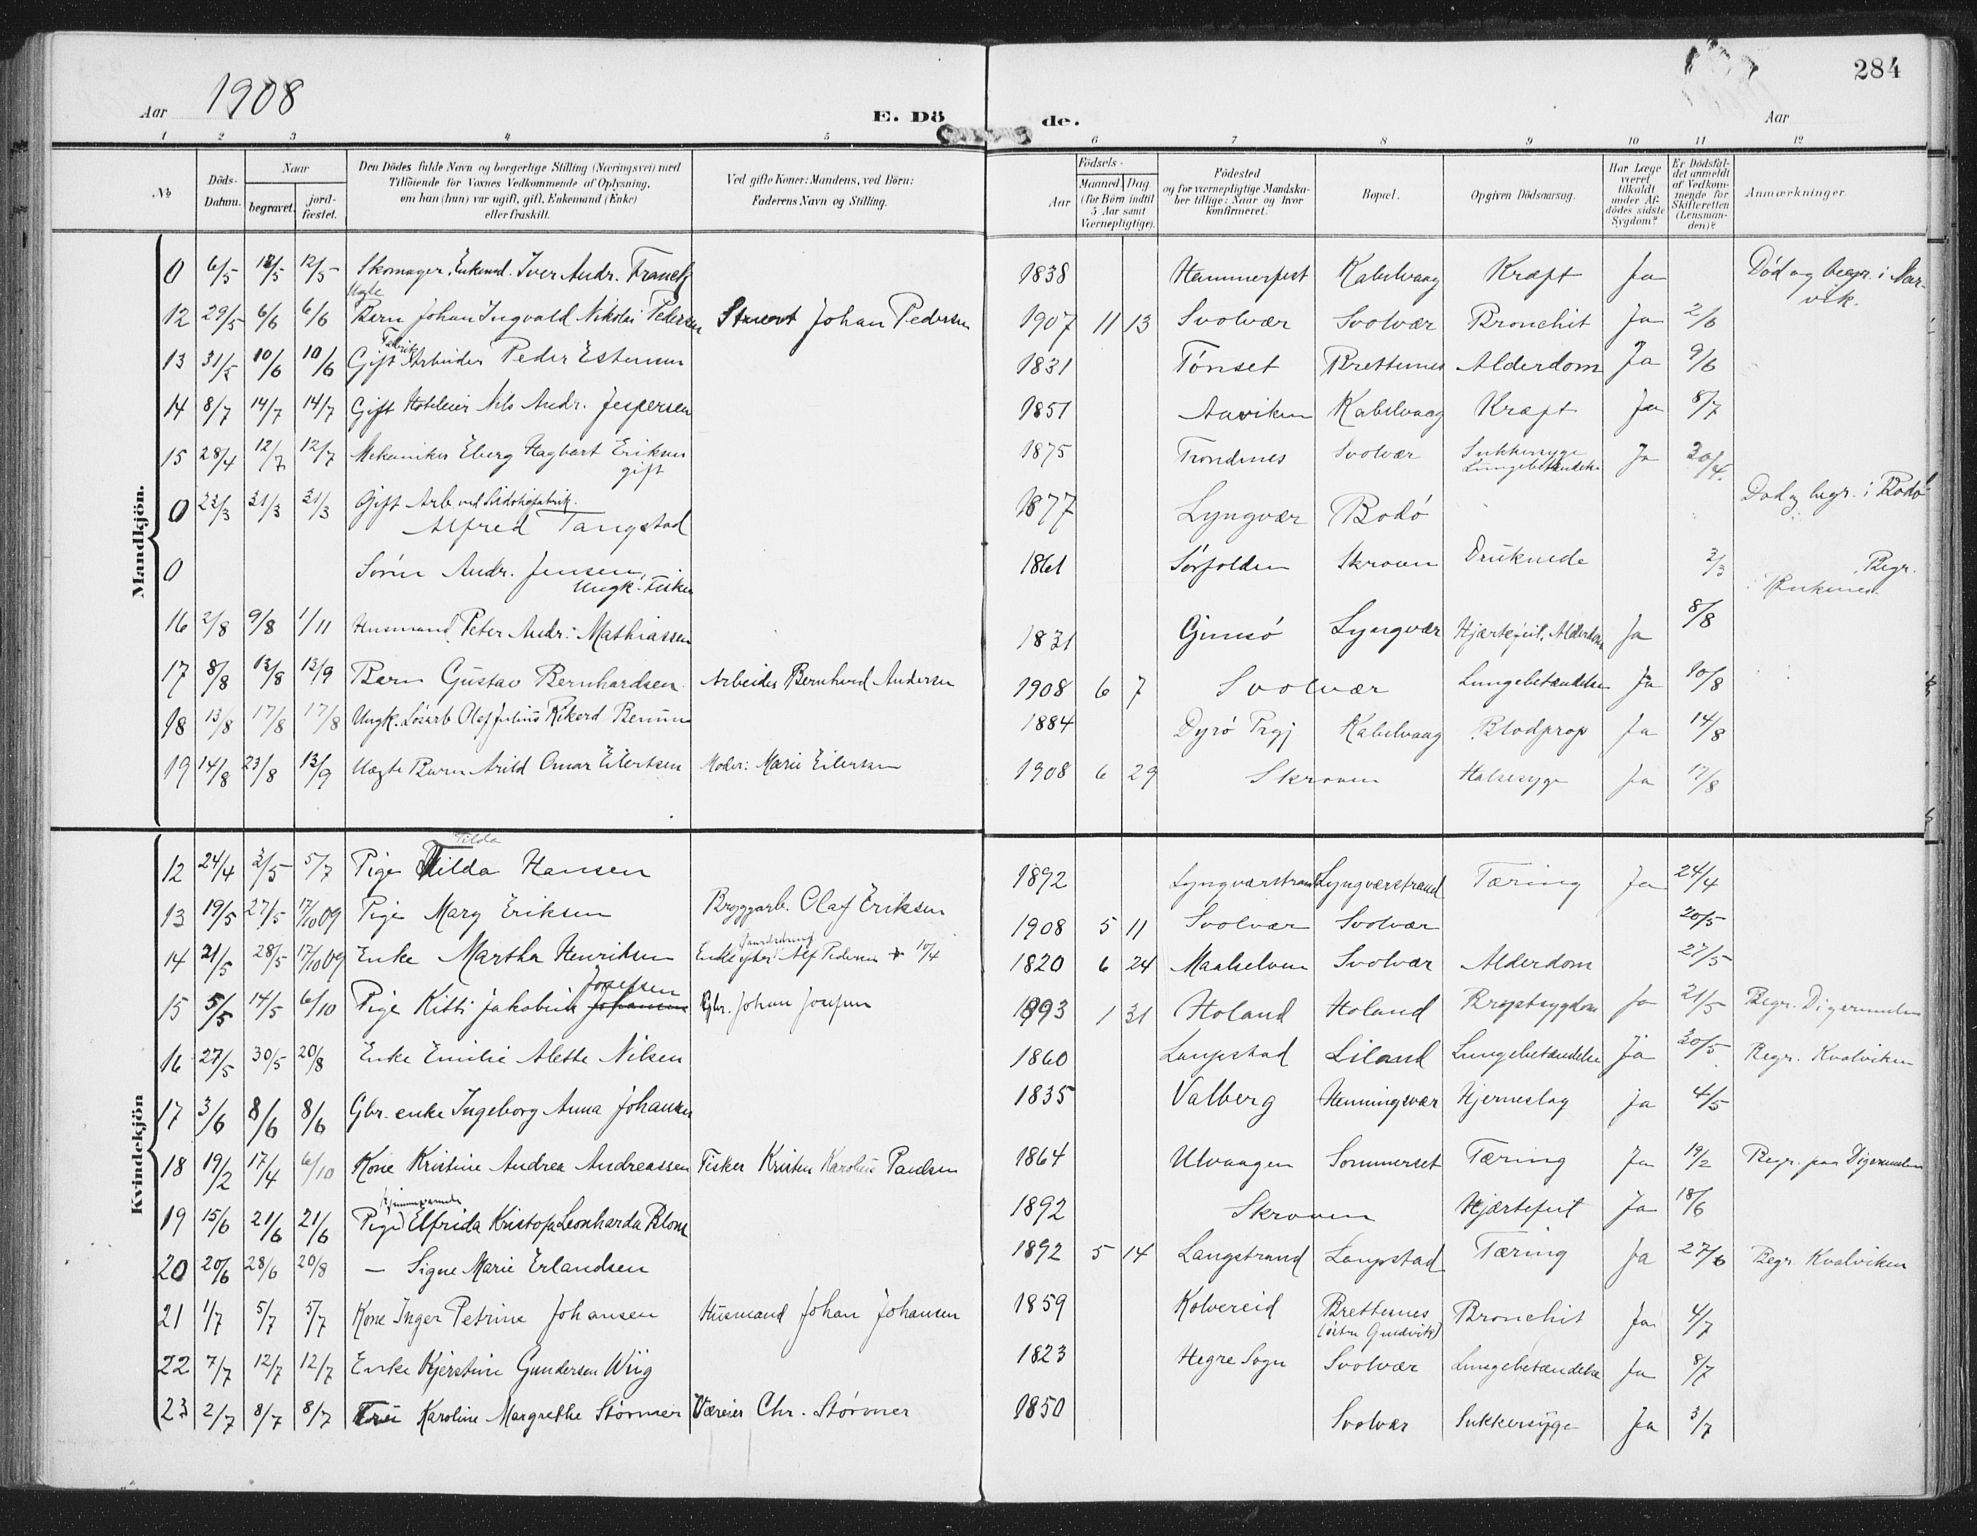 Aar 1908
E. Döde.
Aar
284
1 2 3 4 5 6 7 8 9 10 11 12
No
Döds-Datum.
Naar
begravet.
jord-fæstet.
Den Dödes fulde Navn og borgerlige Stilling (Næringsvei) med
Tilföiende for Voxnes Vedkommende af Oplysning,
om han (hun) var ugift, gift, Enkemand (Enke)
eller fraskilt.
Ved gifte Koner: Mandens, ved Börn:
Faderens Navn og Stilling.
Födsels-
Aar
Maaned
Dag
(for Börn indtil
5 Aar samt
Værnepligtige).
Födested
og for værnepligtige Mandska-
ber tillige: Naar og hvor
konfirmeret.
Bopæl.
Opgiven Dödsaarsag.
Har Læge
været
tilkaldt
under Af-
dödes sidste
Sygdom?
Er Dödsfal-
det anmeldt
af Vedkom-
mende for
Skifteretten
(Lensman-
den)?
Anmærkninger.
Mandkjön.
0 6/5 12/5 12/5 Skomager, Enkemd. Iver Andr. Franck 1838 Hammerfest Kabelvaag Kræft Ja Död og begr. i Narvik.
Uægte
12 29/5 6/6 6/6 Barn Johan Ingvald Nikolai Pedersen Stuert Johan Pedersen 1907 11 13 Svolvær Svolvær Bronchit Ja 2/6
Fabrik
13 31/5 10/6 10/6 Gift Arbeider Peder Estensen 1831 Tønset Brettesnes Alderdom Ja 9/6
14 8/7 14/7 14/7 Gift Hoteleier Nils Andr. Jespersen 1851 Aaviken Kabelvaag Kræft Ja 8/7
15 28/4 12/7 12/7 Mekaniker Eberg Hagbart Eriksen gift 1875 Trondenes Svolvær Sukkersyge Lungebetændelse Ja 30/4
0 23/3 31/3 31/3 Gift Arb ved Sildoliefabrik. Alfred Tangstad 1877 Lyngvær Bodø Død og begr. i Bodø
0 Søren Andr. Jensen, Ungk. Fisker 1861 Sørfolden Skroven Druknede 2/3 Begr.
16 2/8 9/8 1/11 Husmand Peter Andr. Mathiassen 1831 Gimsø Lyngvær Hjærtefeil, Alderdom Ja 8/8
17 8/8 13/8 13/9 Barn Gustav Bernhardsen Arbeider Bernhard Andersen 1908 6 7 Svolvær Lungebetændelse Ja 10/8
18 13/8 17/8 17/8 Ungk. Løsarb Olaf Julius Rikard 1884 Dyrø Prgj Kabelvaag Blodprop Ja 14/8
19 14/8 23/8 13/9 Uægte Barn Arild Omar Eilertsen Moder: Marie Eilertsen 1908 6 29 Skroven Halsesyge Ja 17/8
Kvindekjön
Tilda
12 24/4 3/5 5/7 Pige Tilda Hansen 1892 Lyngværstrand Lyngværstrand Tæring Ja 24/4
13 19/5 27/5 17/10 09 Pige Mary Eriksen Bryggarb. Olaf Eriksen 1908 5 11 Svolvær Svolvær 20/5
14 21/5 28/5 17/10 09 Enke Martha Henriksen Enke efter Alf Pedersen 10/4 1820 6 24 Maalselven Svolvær Alderdom 27/5
Josefsen
15 5/5 14/5 6/10 Pige Kitti Jakobine Johansen Gbr. Johan Josefsen 1893 1 31 Holand Holand Brystsygdom Ja 21/5 Begr. Digermulen
16 27/5 30/5 20/8 Enke Emilie Alette Nilsen 1860 Laupstad Liland Lungebetændelse Ja 30/5 Begr. Kvalviken
17 3/6 8/6 8/6 Gbr. enke Ingeborg Anna Johansen 1835 Valberg Henningsvær Hjerneslag ja 4/5
18 19/2 17/4 6/10 Kone Kristine Andrea Andreassen Fisker Kristen Karolius Paulsen 1864 Ulvaagen Sommerset Tæring Ja 19/2 Begr. paa Digermulen
hjemmeværende
19 15/6 21/6 21/6 Pige Elfrida Kristofa Leonharda Blom 1892 Skroven Hjærtefeil Ja 18/6
20 20/6 28/6 20/8 — Signe Marie Erlandsen 1892 5 14 Langstrand Laupstad Tæring Ja 27/6 Begr Kvalviken
21 1/7 5/7 5/7 Kone Inger Petrine Johansen Husmand Johan Johansen 1859 Kolvereid Brettesnes Bronchit Ja 4/7
22 7/7 12/7 12/7 Enke Kjerstine Gundersen Wiig 1823 Hegre Sogn Svolvær Lungebetændelse Ja 8/7
23 2/7 8/7 8/7 Fru Karoline Margrethe Størmer Væreier Chr. Størmer 1850 Svolvær Sukkersyge Ja 3/7